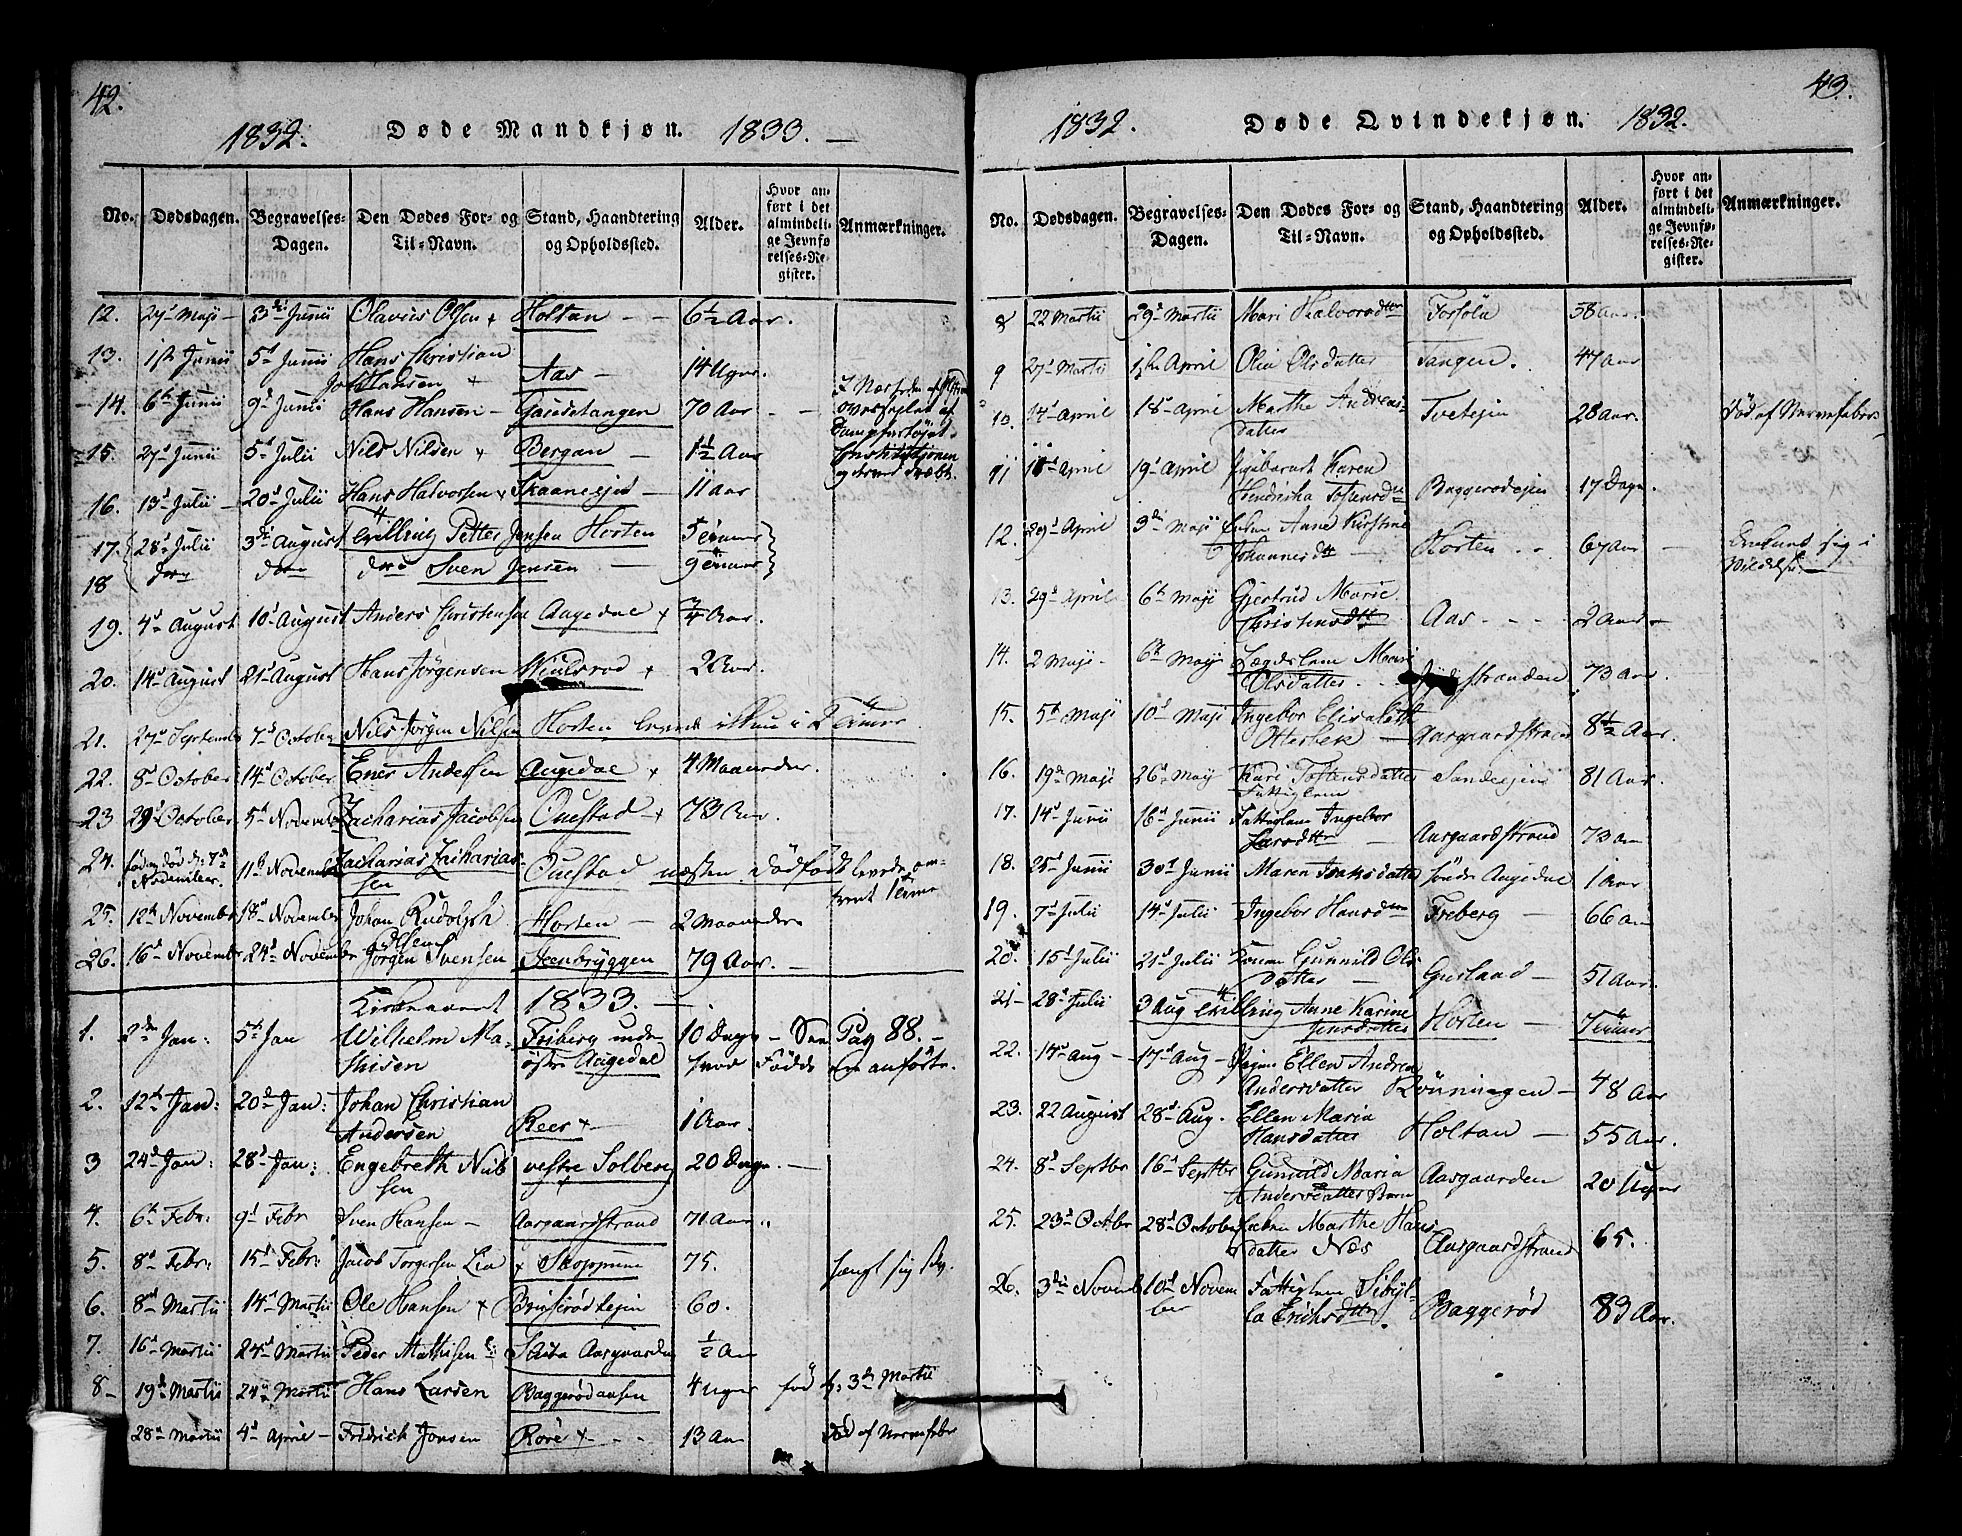 42.
1832. Døde Mandkjøn. 1833. —
No. Dødsdagen. Begravelses-Dagen. Den Dødes For- og Til-Navn. Stand, Haandtering og Opholdssted. Alder. Hvor anført i det almindelige Jevnførelses-Register. Anmærkninger.
12. 27d Maji — 3di Junii Olavus Olsen + Holtan — — 6½ Aar.
13. 1ste Junii 5t Junii Hans Christian
Hansen + Aas — 14 Uger.
14. 6te Junii 9d Junii Hans Hansen — Gausetangen 70 Aar — —
15. 27d Junii 5t Julii Nils Nilsen + Bergan — 1½ Aar
16. 13d Julii — 20d Julii Hans Halvorsen + Skaanesejed — 11 Aar
17. 28d Julii 3di August Tvilling Petter Jensen Horten 5 Timer
18 do do do Sven Jensen — 9 Timer
19. 4d August 10d August Anders Christensen Augedal + ¾ Aar.
20. 14d August 21d August Hans Jørgensen Wiulsrod + 2 Aar.
21. 27d Septembr 7d October Nils Jørgen Nilsen Horten i 2 Timer
22. 8d October 14d October Ener Andersen Augedal + 4 Maaneder.
23 29d October 5t November Zacharias Jacobsen Ouestad + 73 Aar.
24. død d: 7de November 11te November Zacharias Zacharias-
sen Ouestad næsten dødfød levede om-
trent 1 Time
25. 12te November 18d November Johan Rudolph
Olsen Horten — 2 Maaneder
26. 16d November 24d November Jørgen Svensen Steenbryggen 79 Aar. —
Kirkeaaret 1833. —
1. 2den Jan: 5te Jan Wilhelm Ma- Friberg under 10 Dage — See Pag 88. —
thisen østre Augedal Fødde anførte.
2. 12te Jan: 20de Jan: Johan Christian
Andersen Rees + — 1 Aar.
3 24d Jan: 28d Jan: Engebreth Nils
sen vestre Solberg + 20 Dage. —
4. 6te Febr: 9d Febr Sven Hansen — Aasgaardstrand 71 Aar „
5. 8d Febr: 15d Febr: Jacob Torgersen Lia + Skoppum 75. hængt sig selv.
6. 8d Martii 14d Martii Ole Hansen + Brisserød 60.
7. 16d Martii 24d Martii Peder Mathisen Aasgaarden ½ Aar
8 — 19d Martii 24d Martii Hans Larsen Baggerød 4 Uger fød d: 3di Martii
28d Martii 4d April — Fridrich Jonsen Røre + — — 13 Aar Død af Nervefeber
43.
1832. Døde Qvindekjøn. 1832.
No. Dødsdagen. Begravelses-Dagen. Den Dødes For- og Til-Navn. Stand, Haandtering og Opholdssted. Alder. Hvor anført i det almindelige Jevnførelses-Register. Anmærkninger.
8 22 Martii 29d Martii Mari Halvorsdtter 58 Aar.
9 27d Martii 1ste April Olia Olsdatter Tangen. 47 Aar
10. 14d April 18d April Marthe Andreas-
datter Tvetejen 28 Aar. Død af Nervefeber
11 11d April 19d April Karen
Hendricka Baggerødejen 17 Dage.
12. 29d April 3di Maji Enken Anne Kirstine
Johannesdtt — Horten — 67 Aar — sig i
13. 29d April 6te Maji Gjertrud Marie
Christensdtt Aas — — — 2 Aar —
14. 2 Maji — 6te Maji Lægdslem Mari
Olsdatter. — strandea 73 Aar.
15. 5te Maji 10d Maji Ingebor Elisabeth
Otterbek — Aasgaardstrand 8½ Aar.
16. 19de Maji 26d Maji Kari Tostensdatter Sandeejen 81 Aar.
Fattiglem
17. 14d Junii 16d Junii Fattiglem Ingebor
Larsdtt — Aasgaardstrand 73 Aar
18. 25d Junii 30d Junii Maren Isaksdatter søndr Augedal 1 Aar
19. 7d Julii 14d Julii Ingebor Hansdtter Freberg — 66 Aar
20. 15d Julii 21d Julii Konen Gunnild Ols
datter — Gustaad — 51 Aar.
21 — 28d Julii 3 Aug Tvilling Anne Karine
Jensdatter Horten — 7 Timer
22. 14d Aug — 17d Aug — Pigen Ellen Andrea
Andersdatter Rönningen — 48 Aar
23. 22 August 28d Aug. Ellen Maria
Hansdatter Holtan — 55 Aar.
24. 8d Septbr 16d Septbr Gunild Maria
Andersdatter Barn Aasgaarden 20 Uger
25. 23d Octbr 28d October Enken Marthe Hans
datter Næs Aasgaardstrand 65.
26. 3die Novemb 10d Novem
ber Fattiglem Sibyl-
la Erichsdtter. Baggerød 83 Aar.